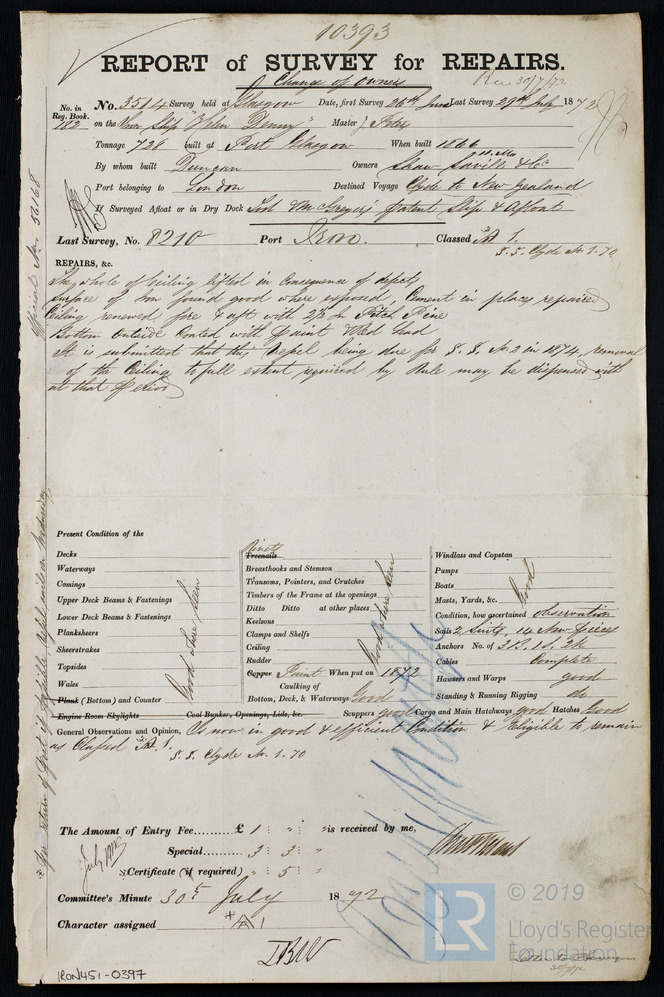 10393
REPORT of SURVEY for REPAIRS.
Change of Owners
Rec 30/7/72
No. in Reg. Book. No. 3514 Survey held at Glasgow Date, first Survey 26th June Last Survey 29th July 1872
182 on the Iron Ship "Helen Denny" Master Peters
Tonnage 728 built at Port Glasgow When built 1866
By whom built Duncan Owners Shaw Savill & Co
Port belonging to London Destined Voyage Clyde to New Zealand
If Surveyed Afloat or in Dry Dock Tod & McGregor's patent Slip & Afloat
Last Survey, No. 8210 Port Iron. Classed A 1.
S.S. Clyde No. 1. 70
REPAIRS, &c.
The whole of Ceiling lifted in Consequence of defects
Surface of Iron found good where exposed, Cement in places repaired
Ceiling renewed fore & aft with 2½ in Pitch Pine
Bottom outside Coated with paint Red Lead
It is submitted that this Vessel being due for S.S. No 2 in 1874, removal
of the Ceiling to full extent required by Rule may be dispensed with
at that period
Official No. 56168
Present Condition of the
Decks
Waterways
Comings
Upper Deck Beams & Fastenings
Lower Deck Beams & Fastenings
Planksheers
Sheerstrakes
Topsides
Wales
Plank (Bottom) and Counter
Good where seen
Engine Room Skylights Coal Bunker, Openings, Lids, &c.
Rivets
Treenails
Breasthooks and Stemson
Transoms, Pointers, and Crutches
Timbers of the Frame at the openings
Ditto Ditto at other places
Keelsons
Clamps and Shelfs
Ceiling
Rudder
Good where seen
Copper Paint When put on 1872
Caulking of
Bottom, Deck, & Waterways Good
Scuppers good Cargo and Main Hatchways good Hatches Good
Windlass and Capstan
Pumps
Boats
Masts, Yards, &c.
Good
Condition, how ascertained Observation
Sails 2 Suits, 14 New pieces
Anchors No. of 3 B. 1 S. 2 K
Cables Complete
Hawsers and Warps good
Standing & Running Rigging do
General Observations and Opinion, Is now in good & efficient Condition & Eligible to remain
as Classed A 1.
S.S. Clyde No. 1. 70
The Amount of Entry Fee.......... £ 1 : " : " is received by me,
Special.......... 3 : 3 : "
July 1872
Certificate (if required) " : 5 : "
Committee's Minute 30th July 1872
Character assigned A 1
© 2019
LR
Lloyd's Register
Foundation
IRON451-0397